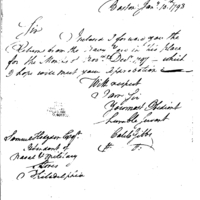 Boston Jany 10th 1798
Sir
Inclosed I forward you the
Return from the Navy Yard in this place
for the Months of Novr & Decr 1797 – which
I hope will meet your approbation –
With respect
I am Sir
Your most Obedient
humble Servant
Caleb Gibbs
Samuel Hodgdon Esqr
Intendant of
Naval & Military
Stores
Philadelphia